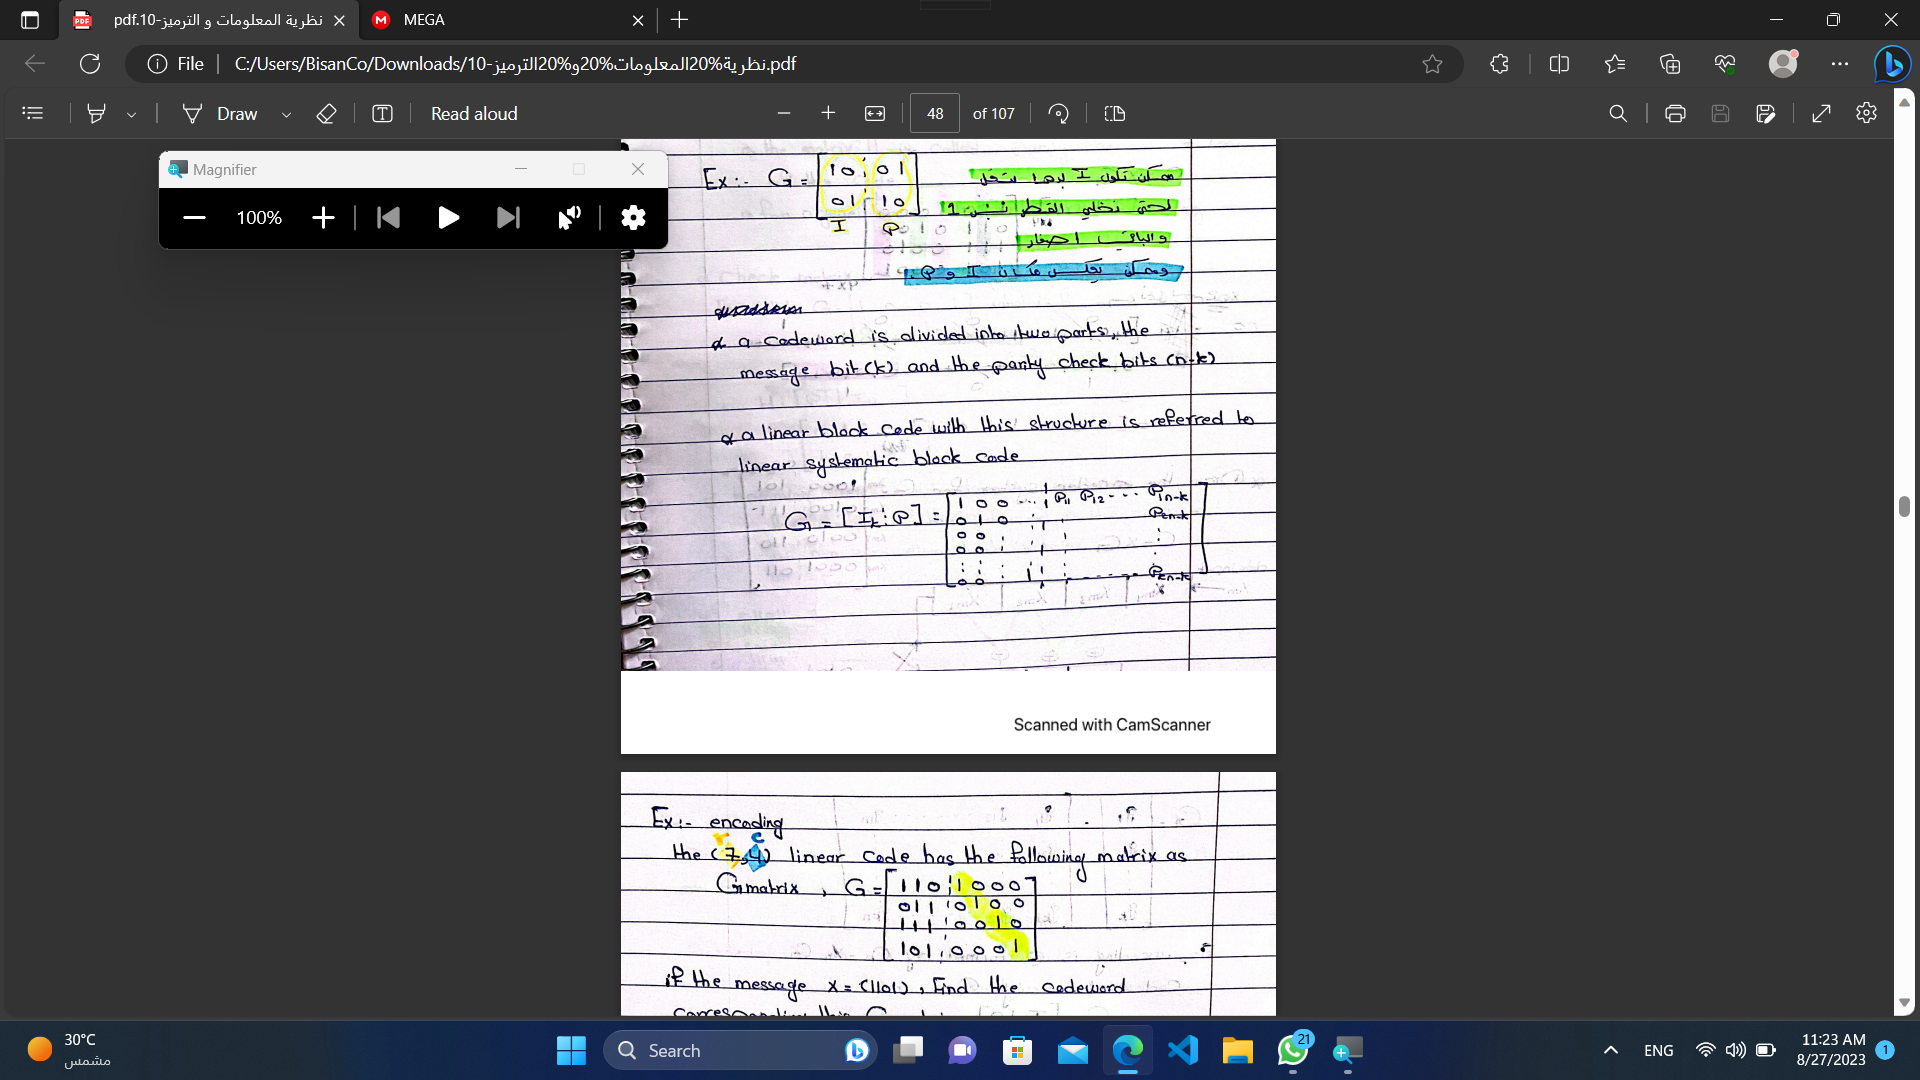 نظرية المعلومات و الترميز-10.pdf
MEGA
File
C:/Users/BisanCo/Downloads/10-نظرية%20المعلومات%20و%20الترميز.pdf
Draw
Read aloud
48
of 107
Magnifier
100%
Ex:- G = [10:01
01:10]
I P
ممكن تكون I بدها شغل
لحتى نخلي القطر نفس 1
والباقي اصفار
وممكن نعكس مكان I و P.
a codeword is divided into two parts, the
message bit (k) and the parity check bits (n-k)
a linear block code with this structure is referred to
linear systematic block code
G = [Ik : P] = [1 0 0 ... P11 P12 ... P1n-k
0 1 0 P2n-k
0 0
0 0
: :
0 0 ... Pkn-k]
Scanned with CamScanner
Ex:- encoding
r c
the (7,4) linear code has the following matrix as
G matrix , G = [110:1000
011:0100
111:0010
101:0001]
if the message x = (1101), Find the codeword
30°C
مشمس
Search
21
ENG
11:23 AM
8/27/2023
1